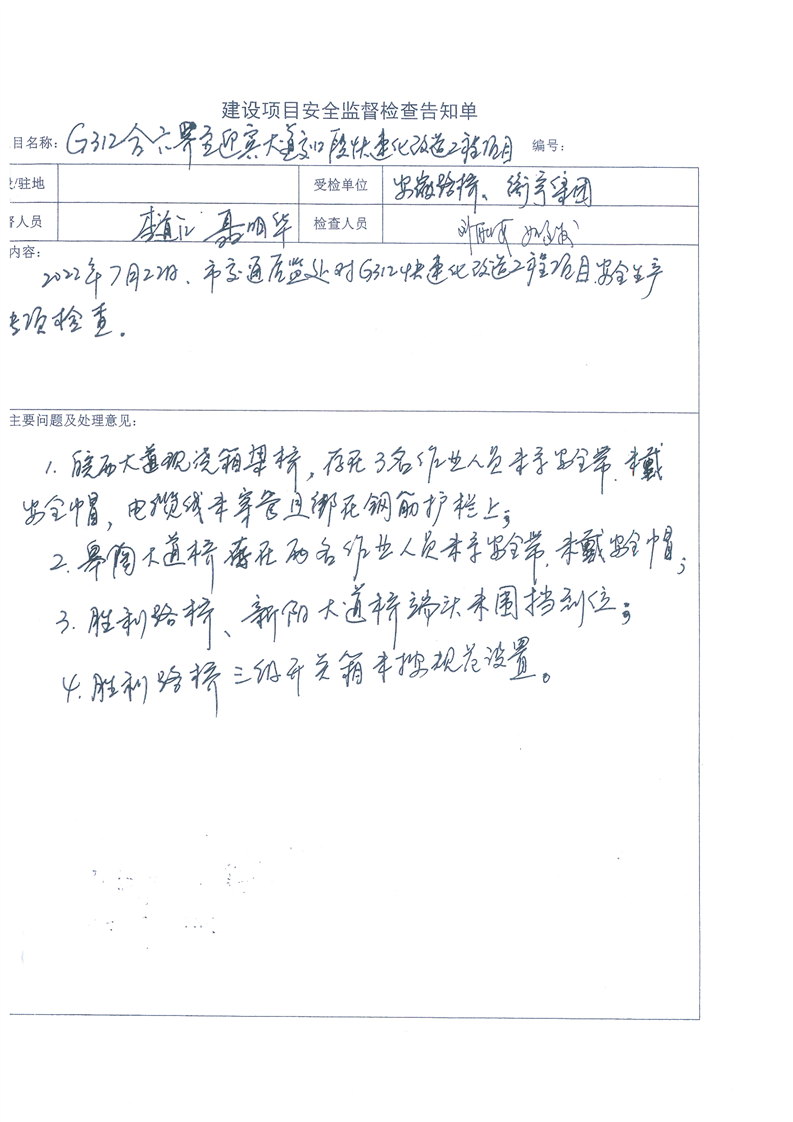 建设项目安全监督检查告知单
目名称: G312合六界至迎宾大道交口段快速化改造工程项目 编号:
/驻地 受检单位 安徽路桥、
督人员 明华 检查人员
内容:
2022年7月22日、市交通质监处对G312快速化改造工程项目安全生产
专项检查。
主要问题及处理意见:
1. 皖西大道现浇箱梁桥，存在3名作业人员未系安全带、未戴
安全帽，电缆线未穿管且绑在钢筋护栏上；
2. 皋陶大道桥存在两名作业人员未系安全带、未戴安全帽；
3. 胜利路桥、新阳大道桥端头未围挡到位；
4. 胜利路桥三级开关箱未按规范设置。